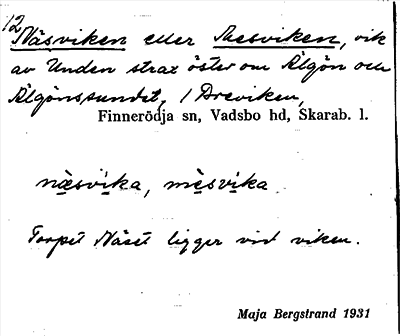 12 Näsviken eller Mesviken, vik
av Unden strax öster om Älgön och
Älgönsundet, i Breviken,
Finnerödja sn, Vadsbo hd, Skarab. l.
næsvika, mèsvika
Torpet Näset ligger vid viken.
Maja Bergstrand 1931